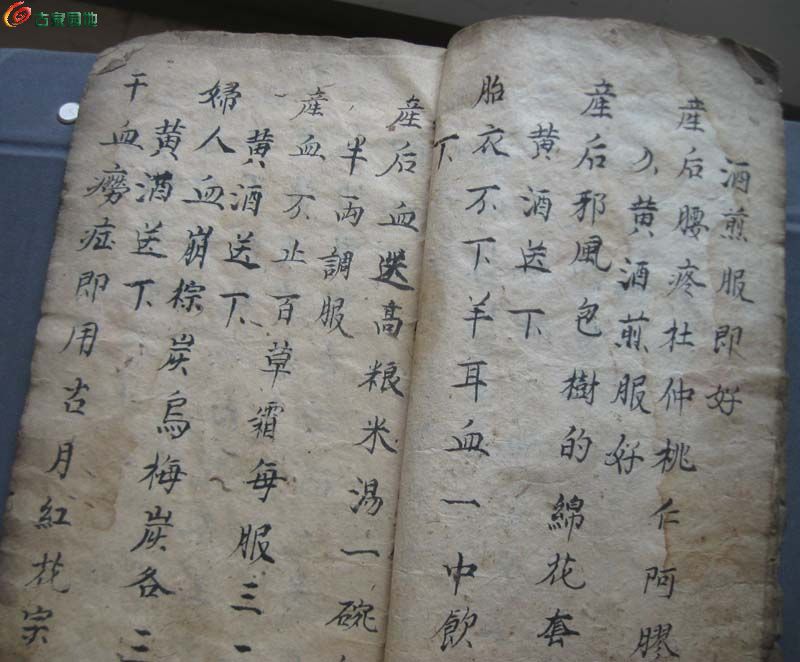 古泉园地
酒煎服即好
産后腰疼杜仲桃仁阿膠
黄酒煎服好
産后邪風包樹的綿花套
黄酒送下
胎衣不下羊耳血一中飲
下
産后血迷高粮米湯一碗
半両調服
産血不止百草霜每服三
黄酒送下
婦人血崩棕炭烏梅炭各二
黄酒送下
干血癆症即用古月紅花宗